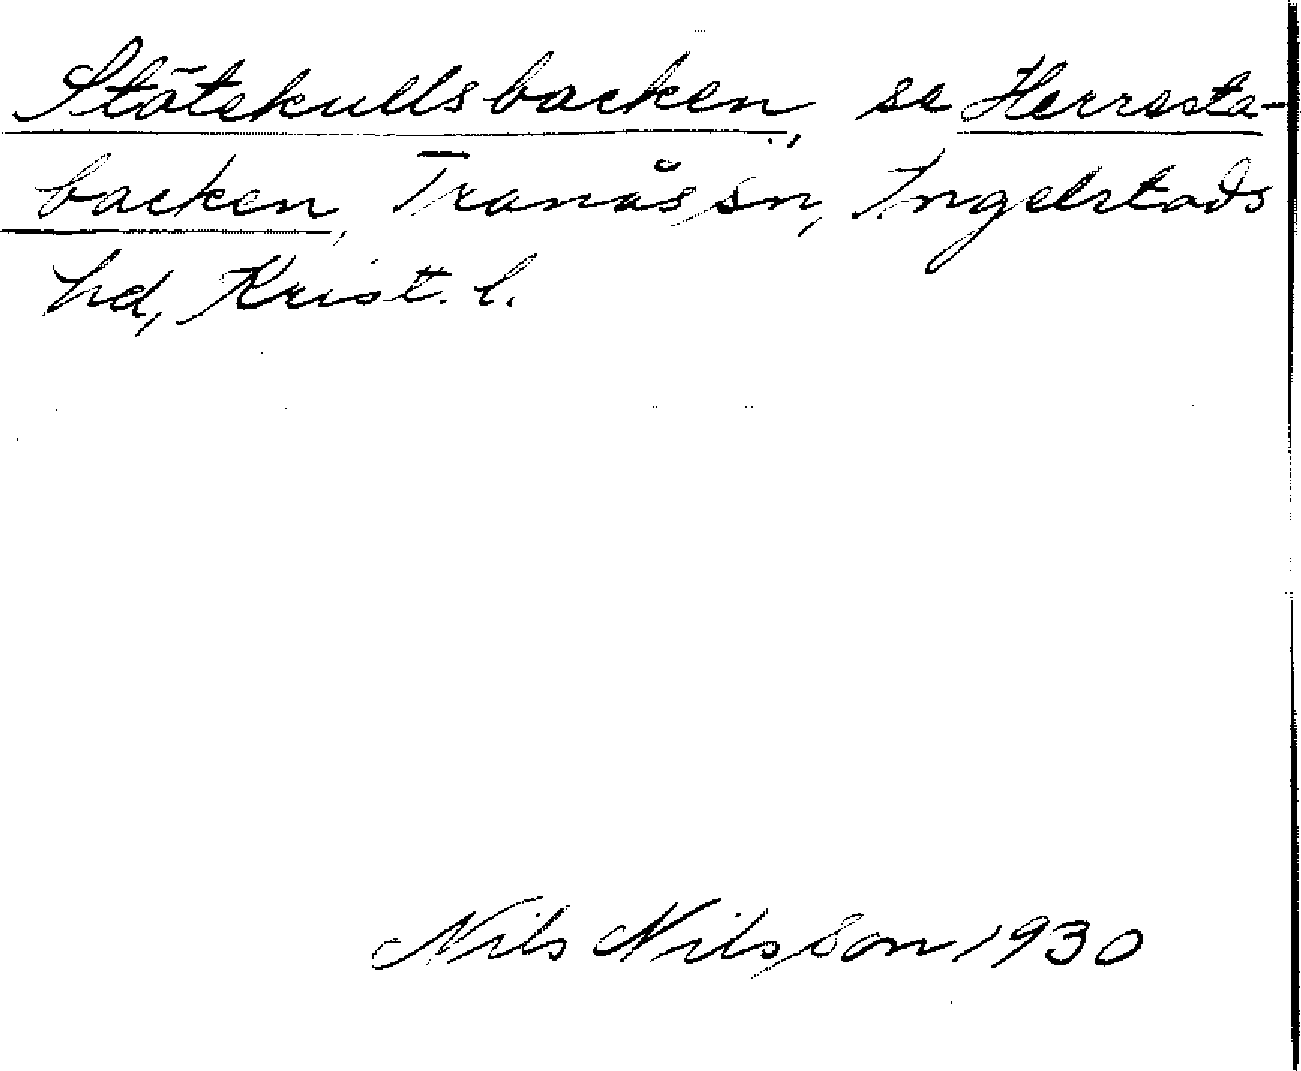 Stätekullsbacken, se Herresta-
backen, Tranås sn, Ingelstads
hd, Krist. l.
Nils Nilsson 1930